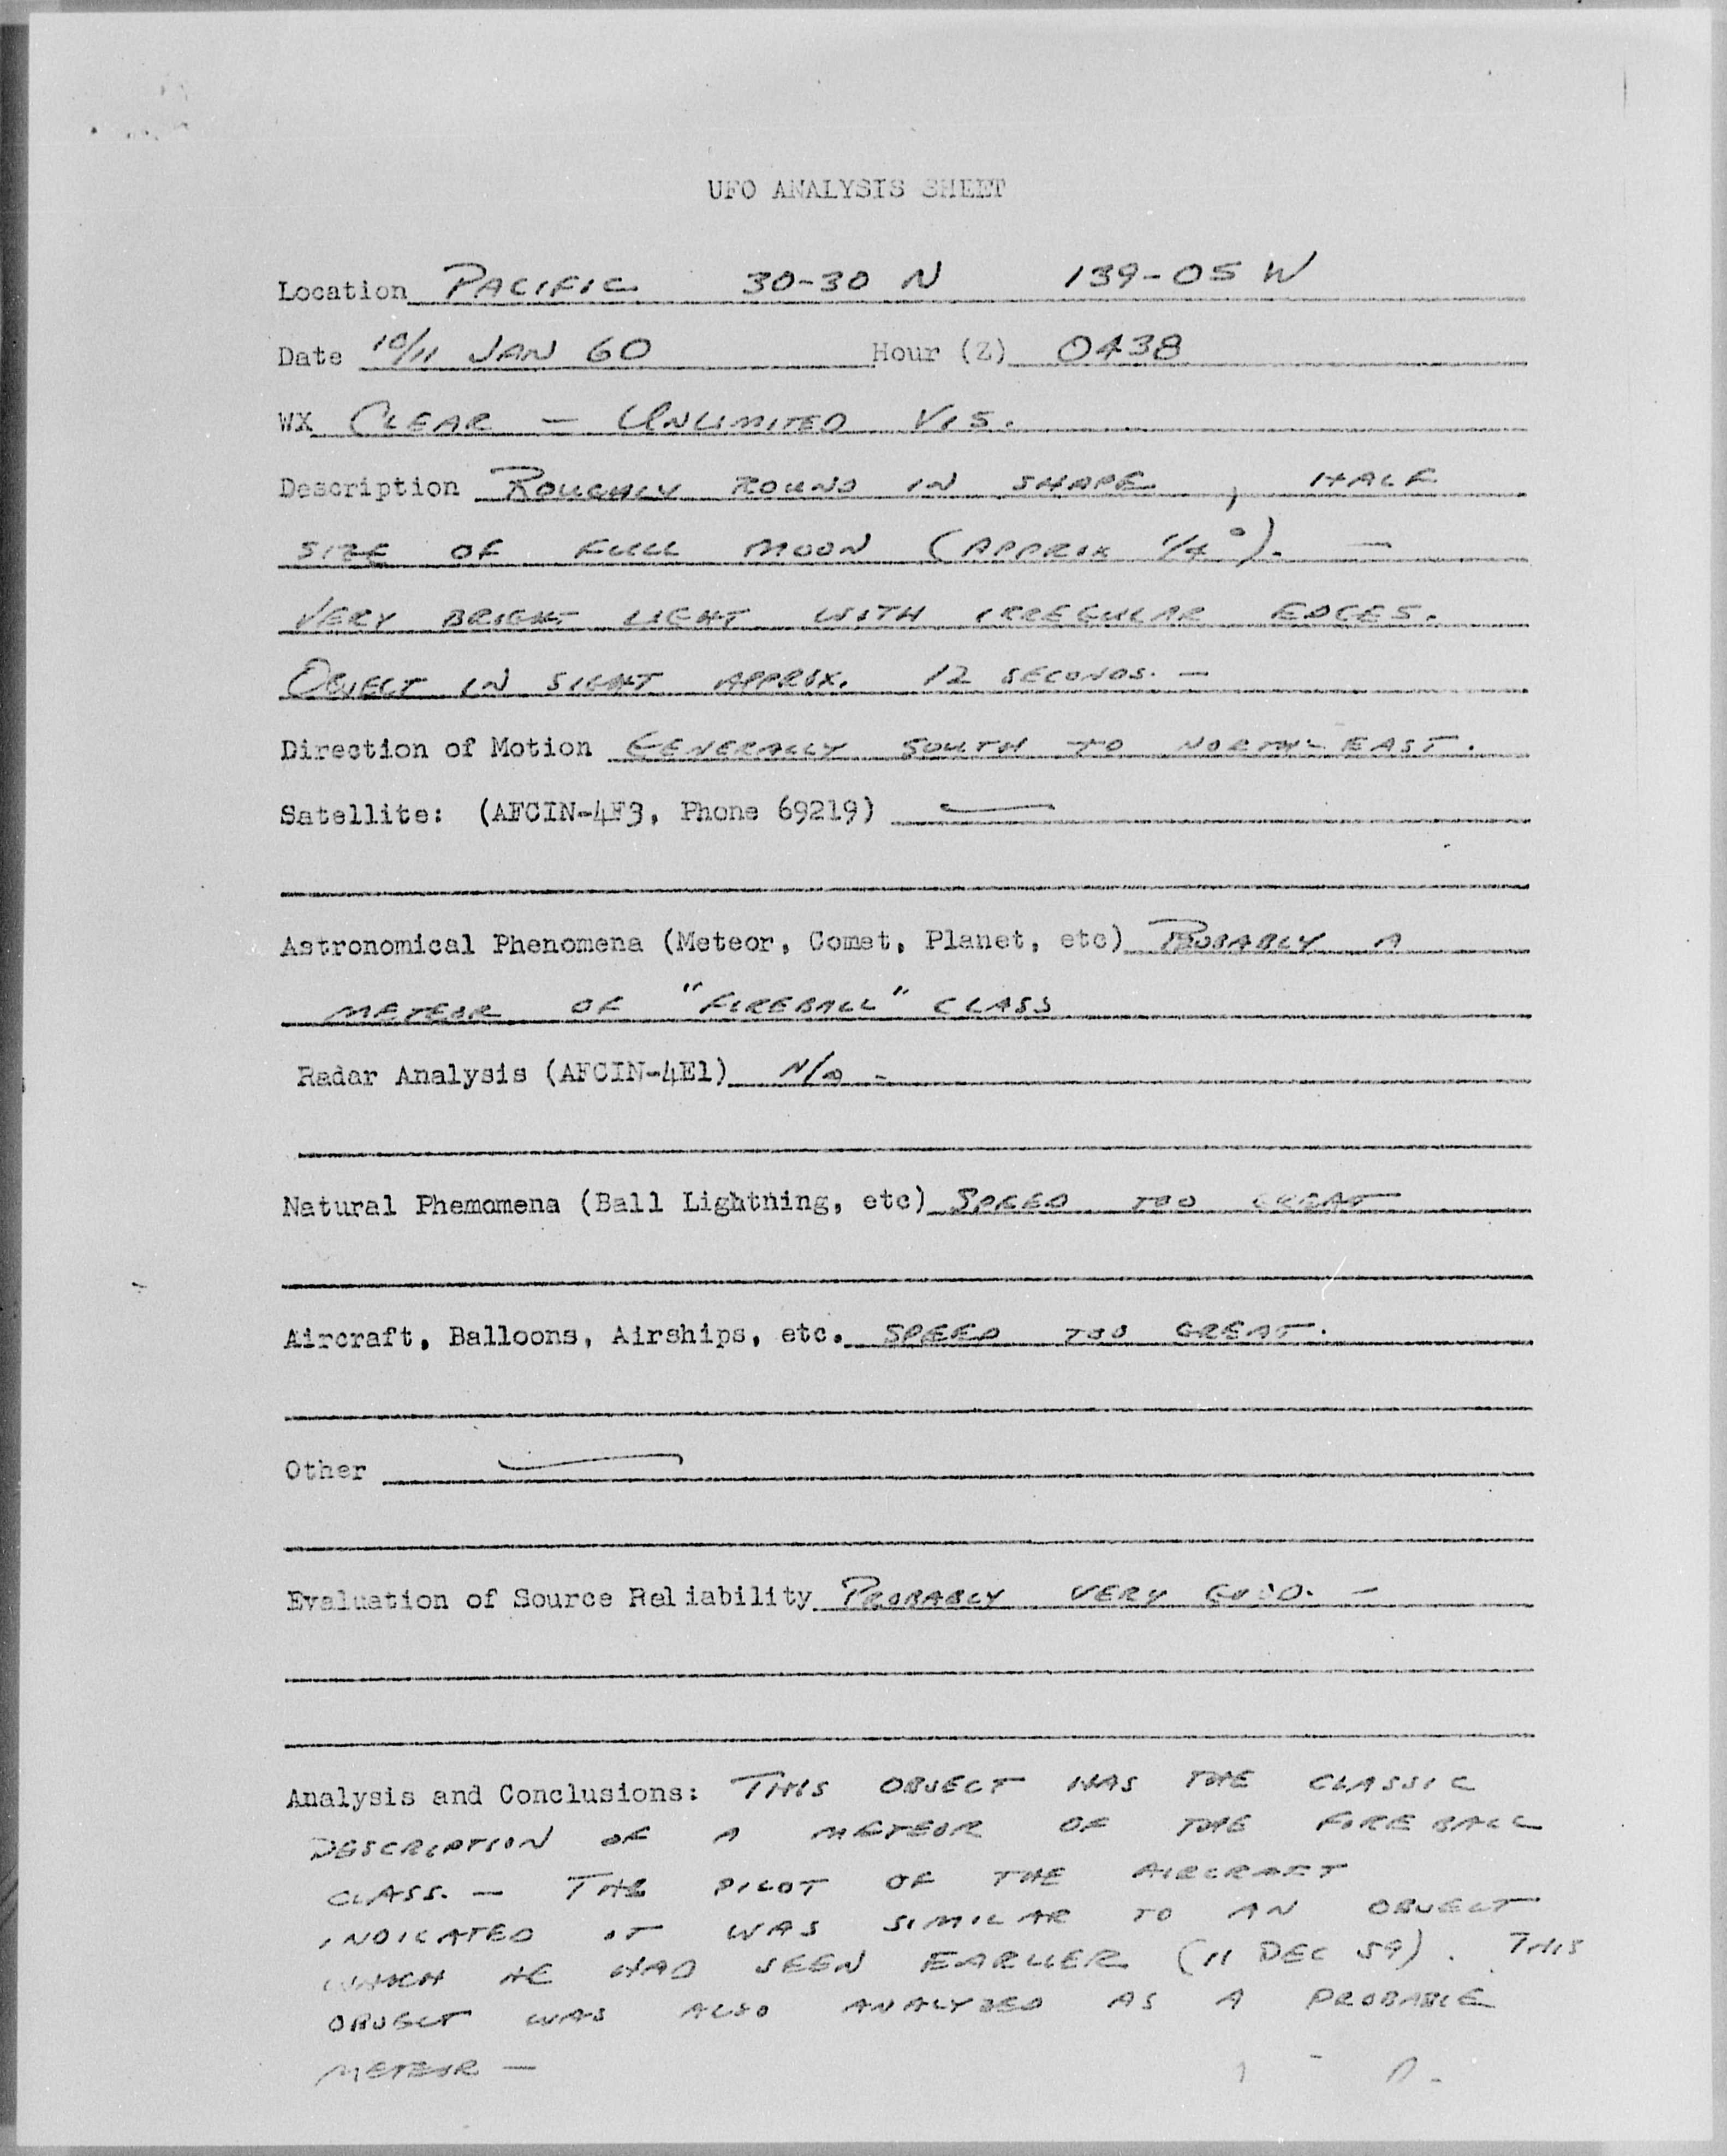 UFO ANALYSIS SHEET
Location PACIFIC 30-30 N 139-05 W
Date 10/11 JAN 60 Hour (Z) 0438
WX CLEAR — UNLIMITED VIS.
Description ROUGHLY ROUND IN SHAPE, HALF
SIZE OF FULL MOON (APPRIX 1/4°). —
VERY BRIGHT LIGHT WITH IRREGULAR EDGES.
OBJECT IN SIGHT APPROX. 12 SECONDS. —
Direction of Motion GENERALLY SOUTH TO NORTH-EAST.
Satellite: (AFCIN-4F3, Phone 69219) —
Astronomical Phenomena (Meteor, Comet, Planet, etc) PROBABLY A
METEOR OF "FIREBALL" CLASS
Radar Analysis (AFCIN-4E1) N/A -
Natural Phemomena (Ball Lightning, etc) SPEED TOO GREAT
Aircraft, Balloons, Airships, etc. SPEED TOO GREAT.
Other —
Evaluation of Source Reliability PROBABLY VERY GOOD. —
Analysis and Conclusions: THIS OBJECT HAS THE CLASSIC
DESCRIPTION OF A METEOR OF THE FIREBALL
CLASS. — THE PILOT OF THE AIRCRAFT
INDICATED IT WAS SIMILAR TO AN OBJECT
WHICH HE HAD SEEN EARLIER (11 DEC 59). THIS
OBJECT WAS ALSO ANALYZED AS A PROBABLE
METEOR —